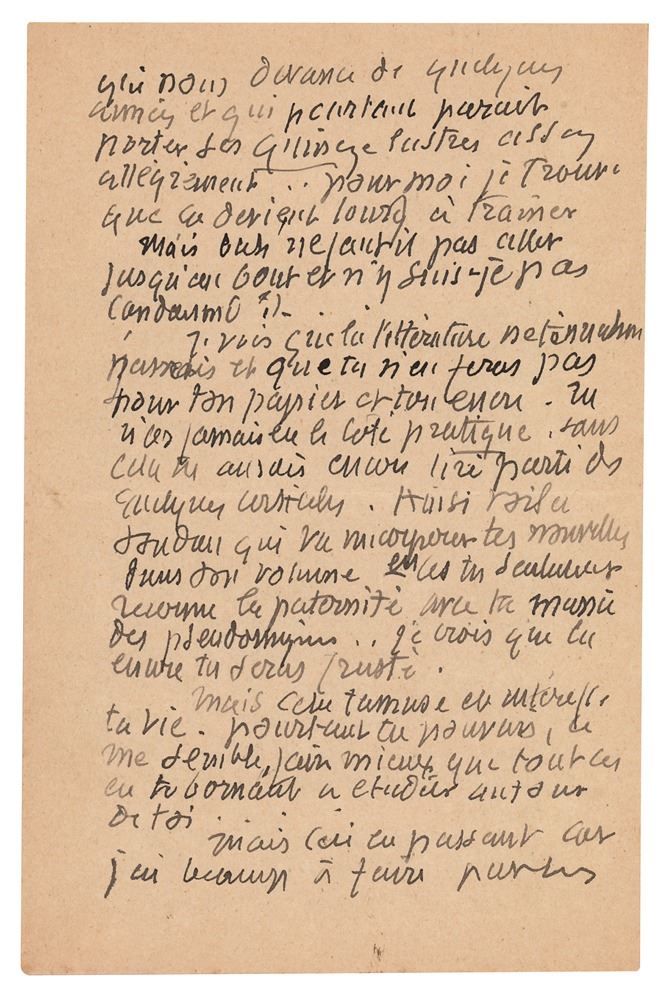 qui nous devance de quelques
années et qui pourtant parait
porter ses quinze lustres assez
allégrement .. pour moi je trouve
que ça devient lourd à trainer
Mais bah ne faut il pas aller
jusqu'au bout et n'y suis-je pas
condamné ?!- . .
Je vois que la littérature ne
jamais et que tu n'en feras pas
pour ton papier et ton encre . Tu
n'as jamais eu le coté pratique . sans
cela tu aurais encore tiré parti de
quelques . Ainsi voila
qui va incorporer tes nouvelles
dans son volume en as tu seulement
reconnu la paternité avec ta manie
des pseudonymes .. je crois que là
encore tu seras frusté .
Mais cela t'amuse et
ta vie . pourtant tu pouvais, ce
me semble, faire mieux que tout ça
en te bornant a etudier autour
de toi .
Mais ceci en passant car
j'ai beaucoup à faire